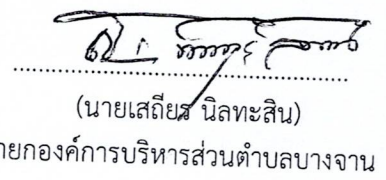 (นายเสถียร นิลทะสิน)
ยกองค์การบริหารส่วนตำบลบางจาน